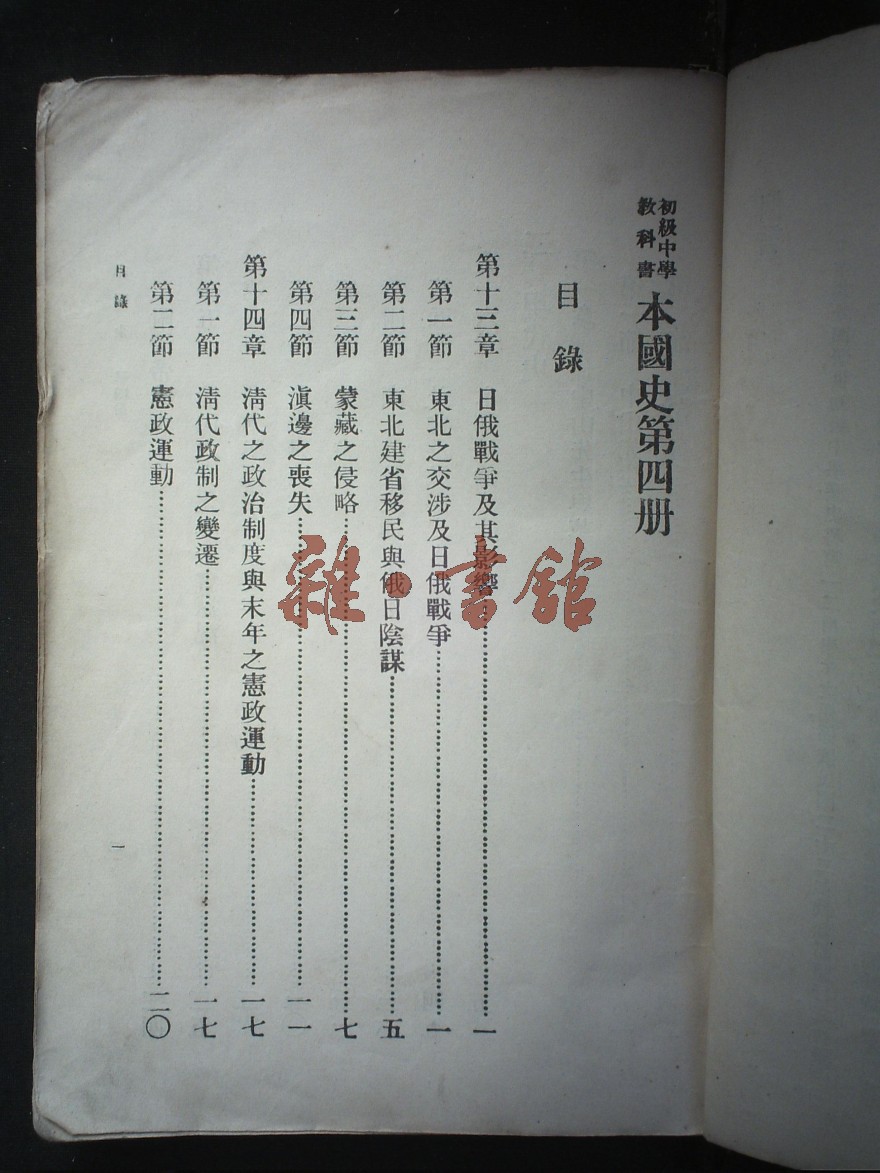 初級中學
教科書
本國史第四册
目錄
第十三章　日俄戰爭及其影響……一
第一節　東北之交涉及日俄戰爭……一
第二節　東北建省移民與俄日陰謀……五
第三節　蒙藏之侵略……七
第四節　滇邊之喪失……一一
第十四章　清代之政治制度與末年之憲政運動……一七
第一節　清代政制之變遷……一七
第二節　憲政運動……二〇
目錄
一
雜·書館